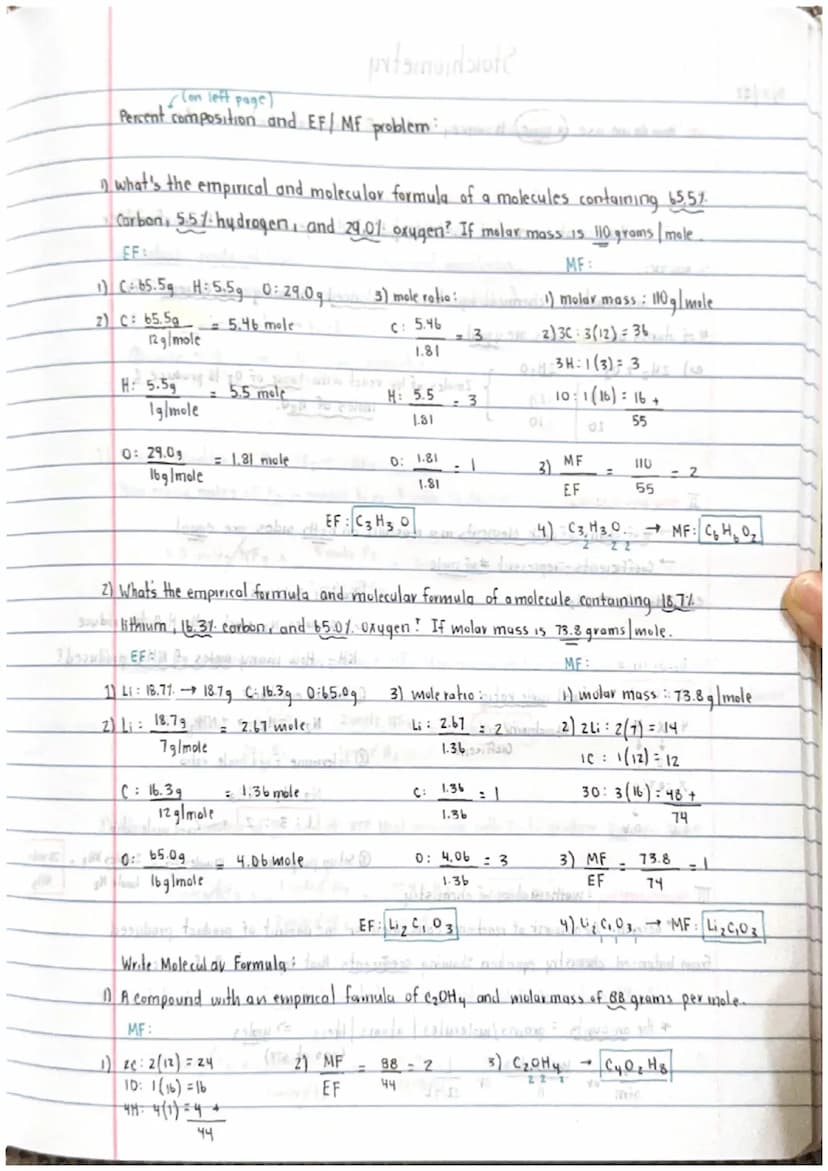 (on left page)
Percent composition and EF/MF problem:
1) What's the empirical and molecular formula of a molecules containing 65.5%
carbon, 5.5% hydrogen, and 29.0% oxygen? If molar mass is 110 grams/mole.
EF:
MF:
1) C: 65.5g H: 5.5g O: 29.0g 3) mole ratio: 1) molar mass: 110g/mole
2) C: 65.5g / 12g/mole = 5.46 mole C: 5.46 / 1.81 = 3 2) 3C: 3(12) = 36
3H: 1(3) = 3
H: 5.5g / 1g/mole = 5.5 mole H: 5.5 / 1.81 = 3 1O: 1(16) = 16 +
55
O: 29.0g / 16g/mole = 1.81 mole O: 1.81 / 1.81 = 1 3) MF / EF = 110 / 55 = 2
EF: C3H3O 4) C3H3O → MF: C6H6O2
2 2 2
2) What's the empirical formula and molecular formula of a molecule containing 18.7%
lithium, 16.3% carbon, and 65.0% oxygen? If molar mass is 73.8 grams/mole.
EF:
MF:
1) Li: 18.7% → 18.7g C: 16.3g O: 65.0g 3) mole ratio: 1) molar mass: 73.8g/mole
2) Li: 18.7g / 7g/mole = 2.67 mole Li: 2.67 / 1.36 = 2 2) 2Li: 2(7) = 14
1C: 1(12) = 12
C: 16.3g / 12g/mole = 1.36 mole C: 1.36 / 1.36 = 1 3O: 3(16) = 48 +
74
O: 65.0g / 16g/mole = 4.06 mole O: 4.06 / 1.36 = 3 3) MF / EF = 73.8 / 74 = 1
EF: Li2C1O3 4) Li2C1O3 → MF: Li2C1O3
1 1 1
Write Molecular Formula:
1) A compound with an empirical formula of C2OH4 and molar mass of 88 grams per mole.
MF:
1) 2C: 2(12) = 24 2) MF / EF = 88 / 44 = 2 3) C2OH4 → C4O2H8
2 2 2
1O: 1(16) = 16
4H: 4(1) = 4 +
44